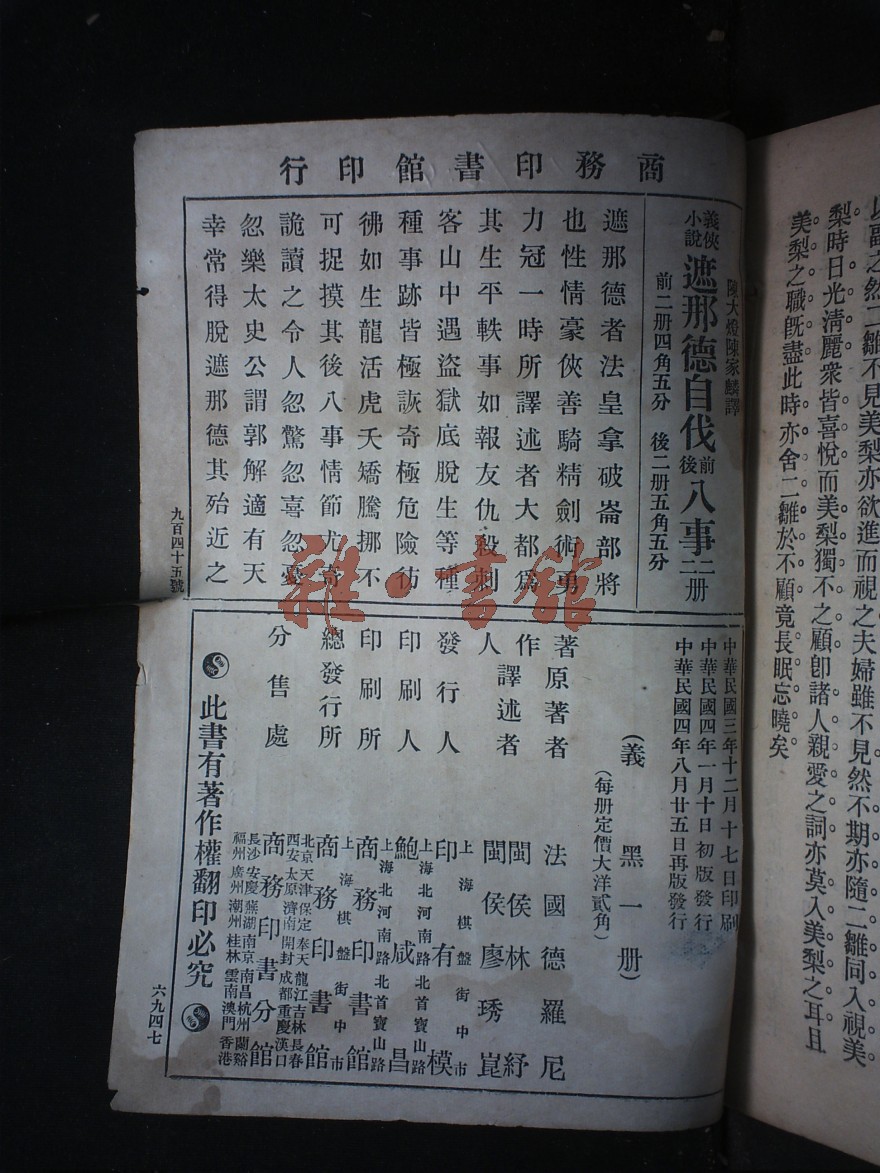 以副之然二雛不見美梨亦欲進而視之夫婦雖不見然不期亦隨二雛同入視美
梨時日光淸麗衆皆喜悅而美梨獨不之顧卽諸人親愛之詞亦莫入美梨之耳且
美梨之職旣盡此時亦舍二雛於不顧竟長眠忘曉矣
商務印書館印行
陳大燈陳家麟譯
義俠小說 遮那德自伐前後八事二二册
前二册四角五分 後二册五角五分
遮那德者法皇拿破崙部將
也性情豪俠善騎精劍術勇
力冠一時所譯述者大都爲
其生平軼事如報友仇殺刺
客山中遇盜獄底脫生等種
種事跡皆極詼奇極危險彷
彿如生龍活虎夭矯騰挪不
可捉摸其後八事情節尤奇
詭讀之令人忽驚忽喜忽憂
忽樂太史公謂郭解適有天
幸常得脫遮那德其殆近之
九百四十五號
中華民國三年十二月十七日印刷
中華民國四年一月十日初版發行
中華民國四年八月廿五日再版發行
(義黑一册)
(每册定價大洋貳角)
著作人
原著者 法國德羅尼
譯述者 閩侯林紓
閩侯廖琇崑
發行人 印有模
上海棋盤街中市
印刷人 鮑咸昌
上海北河南路北首寶山路
印刷所 商務印書館
上海北河南路北首寶山路
總發行所 商務印書館
上海棋盤街中市
分售處 商務印書分館
北京天津保定奉天龍江吉林長春
西安太原濟南開封成都重慶漢口
長沙安慶蕪湖南京南昌杭州蘭谿
福州廣州潮州桂林雲南澳門香港
此書有著作權翻印必究
六九四七
雜·書館